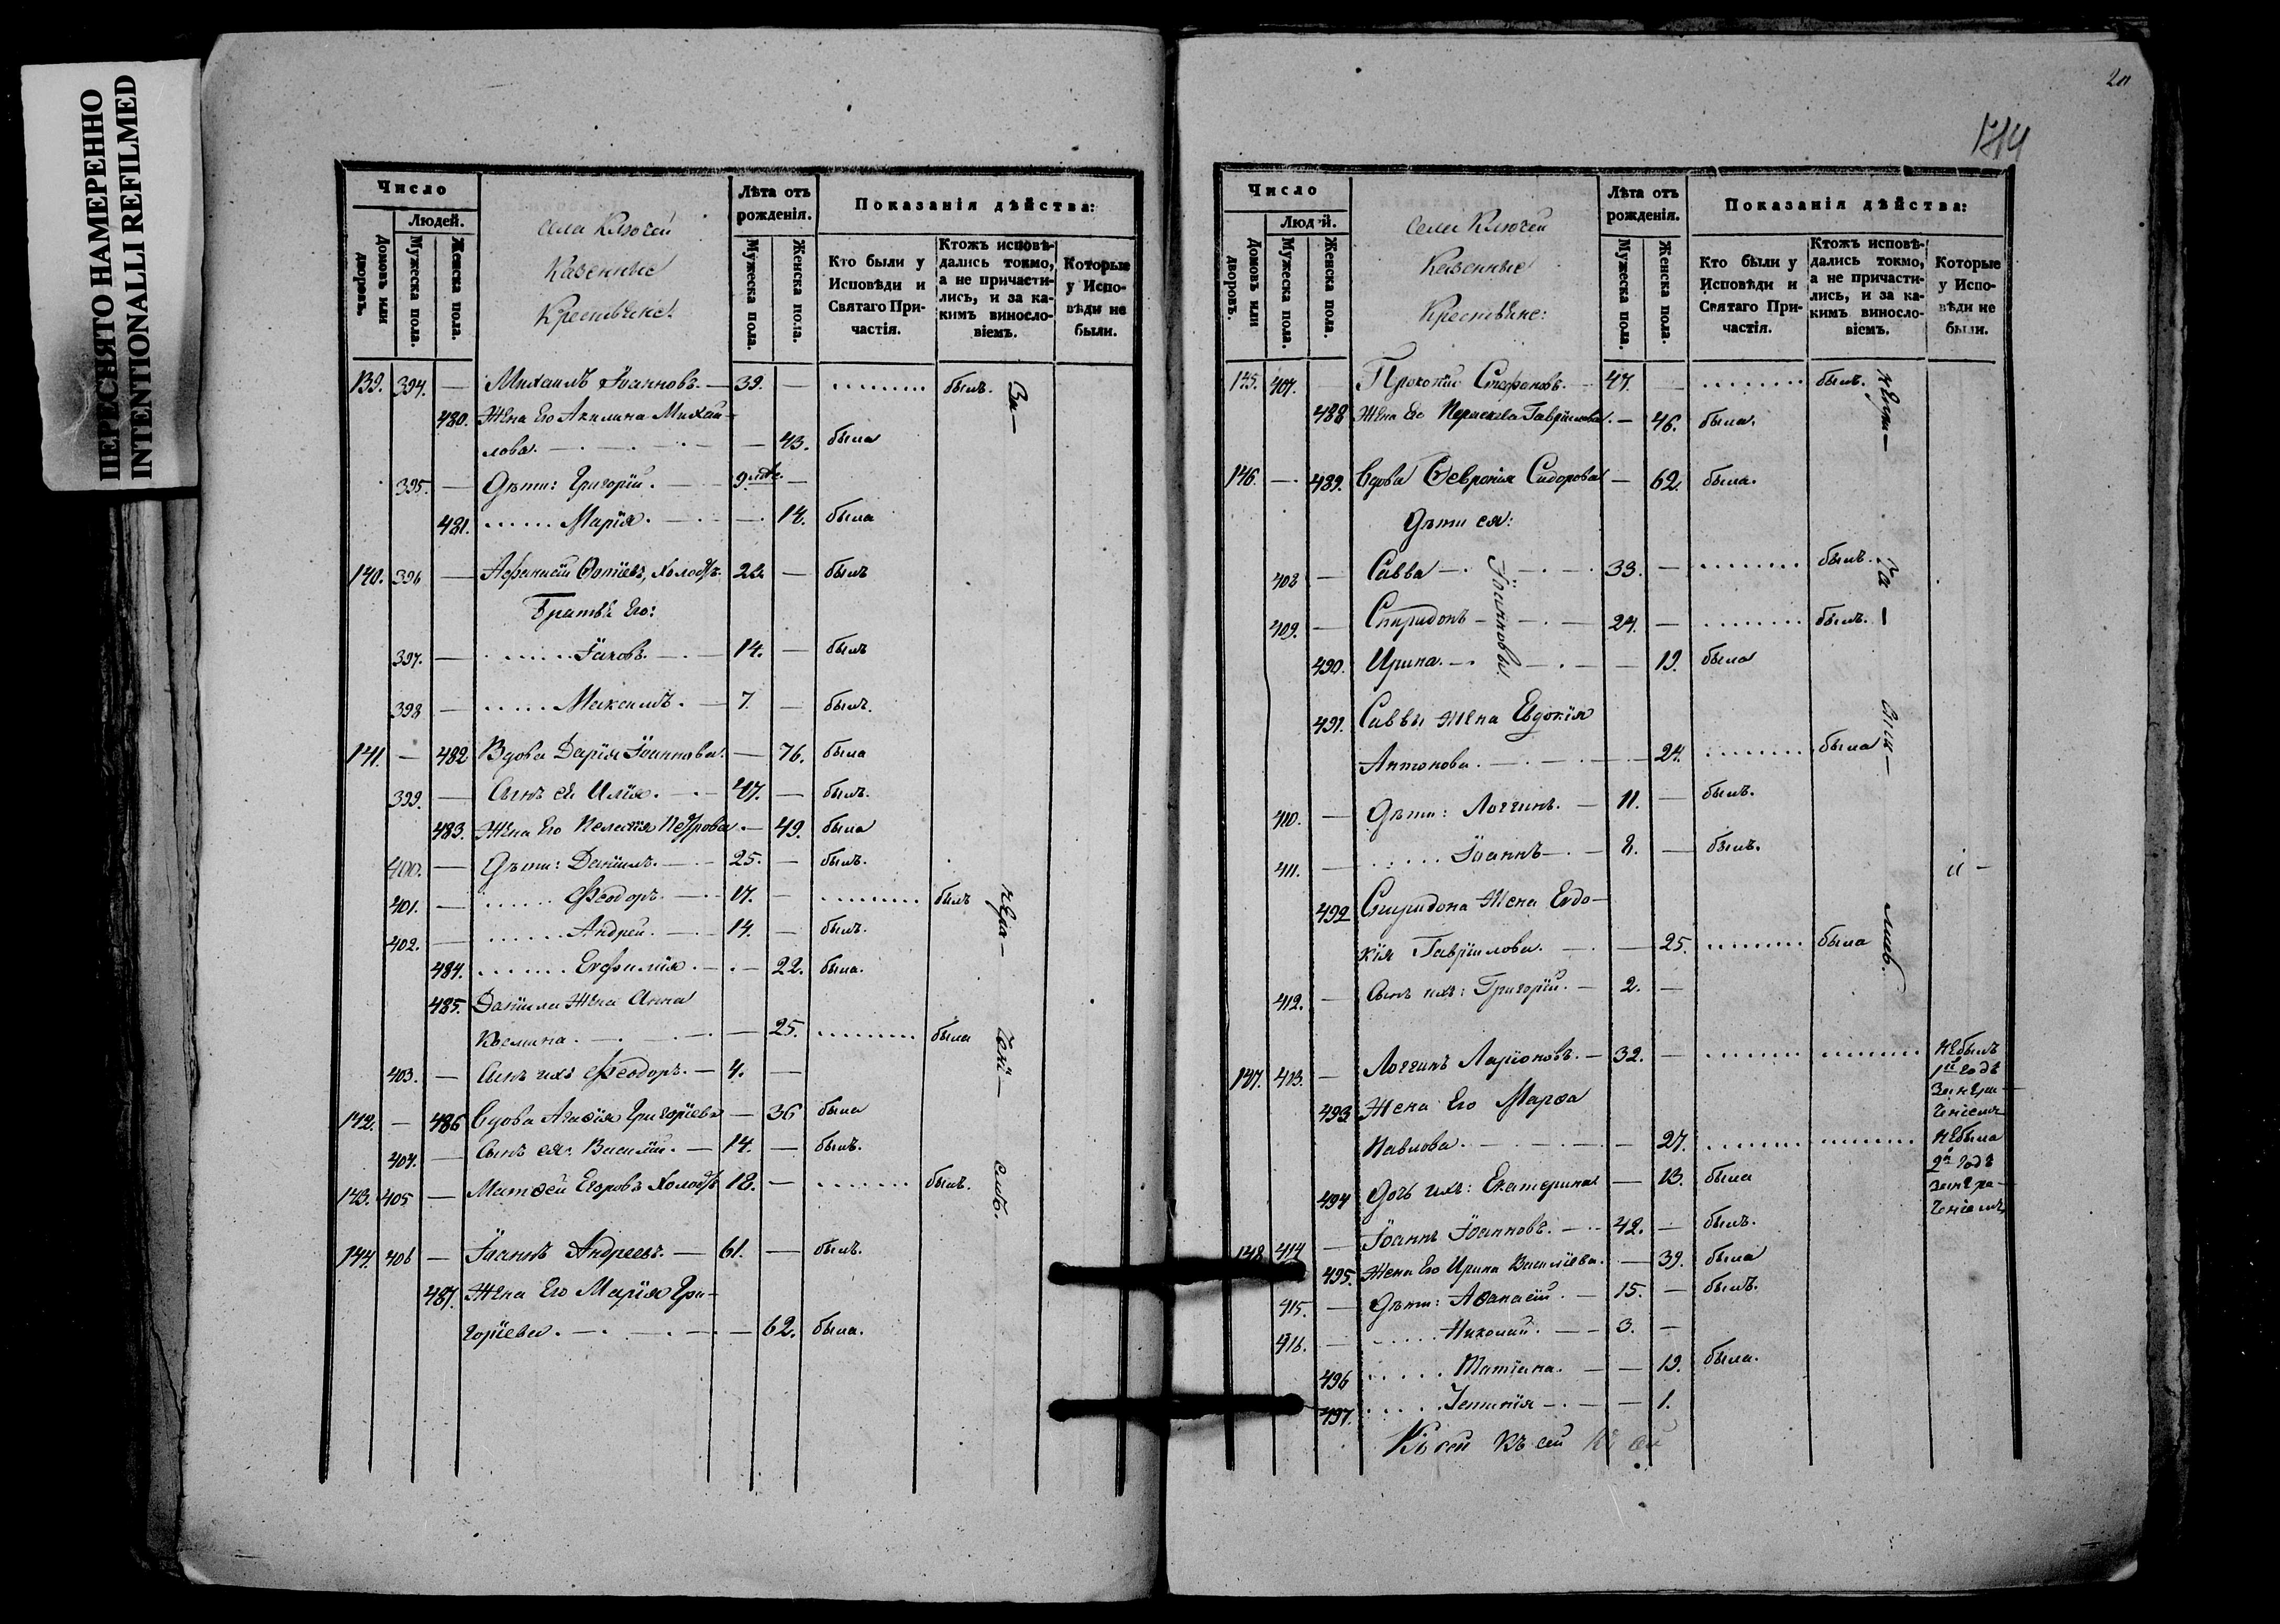 ПЕРЕСНЯТО НАМЕРЕННО
INTENTIONALLI REFILMED
Число
Людей.
Домовъ или дворовъ.
Мужеска пола.
Женска пола.
села Ключей
Казенные
Крестьяне:
Лѣта отъ рожденія.
Мужеска пола.
Женска пола.
Показанія дѣйства:
Кто были у Исповѣди и Святаго Причастія.
Ктожъ исповѣдались токмо, а не причастились, и за какимъ винословіемъ.
Которые у Исповѣди не были.
139. 394. — Михаилъ Іоанновъ. — 39. — ......... былъ.
480. Жена Его Акилина Михаи-
лова. — 43. была
395. — Дѣти: Григорій. — 9. —
481. ...... Марія. — 14. была
140. 396 — Афанасій Фотіевъ, Холостъ. 22. — былъ
Братья Его:
397. — ...... Іаковъ. — 14. — былъ
398 — ...... Максимъ. — 7. — былъ.
141. — 482 Вдова Дарія Іоаннова. — 76. была
399. — Сынъ ея Илія. — 47. — былъ.
483. Жена Его Пелагія Петрова — 49. была
400. — Дѣти: Даніилъ. — 25. — былъ.
401. — ...... Феодоръ. — 17. — ......... былъ
402. — ...... Андрей. — 14. — былъ.
484. ...... Евфимія. — 22. была.
485. Даніила Жена Анна
Космина. — 25. ......... была
403. — Сынъ ихъ Феодоръ. — 4. —
142. — 486 Вдова Агафія Григоріева — 36 была
404. — Сынъ ея: Василій. — 14. — былъ.
143. 405 — Матѳей Егоровъ Холостъ 18. — ......... былъ.
144. 406 — Іоаннъ Андреевъ. — 61. — былъ.
487. Жена Его Марія Гри-
горіева. — 62. была.
За-
нера-
чені-
емъ.
20
Число
Людей.
Домовъ или дворовъ.
Мужеска пола.
Женска пола.
села Ключей
Казенные
Крестьяне:
Лѣта отъ рожденія.
Мужеска пола.
Женска пола.
Показанія дѣйства:
Кто были у Исповѣди и Святаго Причастія.
Ктожъ исповѣдались токмо, а не причастились, и за какимъ винословіемъ.
Которые у Исповѣди не были.
145. 407. — Прокопій Стефановъ. — 47. — ......... былъ.
488 Жена Его Параскева Гавріилова. — 46. была.
146. — 489. Вдова Февронія Сидорова — 62. была.
Дѣти ея:
408 — Савва — 33. — ......... былъ.
409. — Спиридонъ — 24. — ......... былъ.
490. Ирина. — 19. была
491. Саввы жена Евдокія
Антонова. — 24. ......... была
410. — Дѣти: Логгинъ. — 11. — былъ.
411. — ..... Іоаннъ — 8. — былъ.
492 Спиридона Жена Евдо-
кія Гавріилова. — 25. ......... была
412. — Сынъ ихъ: Григорій. — 2. —
147. 413. — Логгинъ Ларіоновъ. — 32. — ......... ......... Не былъ
1й годъ
За нера-
ченіемъ
493 Жена Его Марѳа
Павлова. — 27. ......... ......... Не была
2й годъ
За нера-
ченіемъ
494 Дочь ихъ: Екатерина — 13. была
148. 414 — Іоаннъ Іоанновъ. — 42. — былъ.
495. Жена Его Ирина Василіева. — 39. была
415. — Дѣти: Аѳанасій. — 15. — былъ.
416. — ..... Николай. — 3. —
496 ..... Татіана. — 19. была.
497. ..... — 1.
Къ сей Къ сей Къ сей